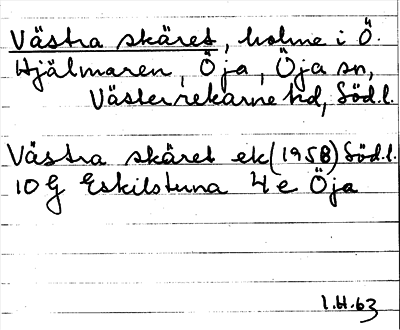 Västra skäret, holme i Ö.
Hjälmaren, Öja, Öja sn,
Västerrekarne hd, Södl.
Västra skäret ek (1958) Södl.
10G Eskilstuna 4e Öja
1.H.63